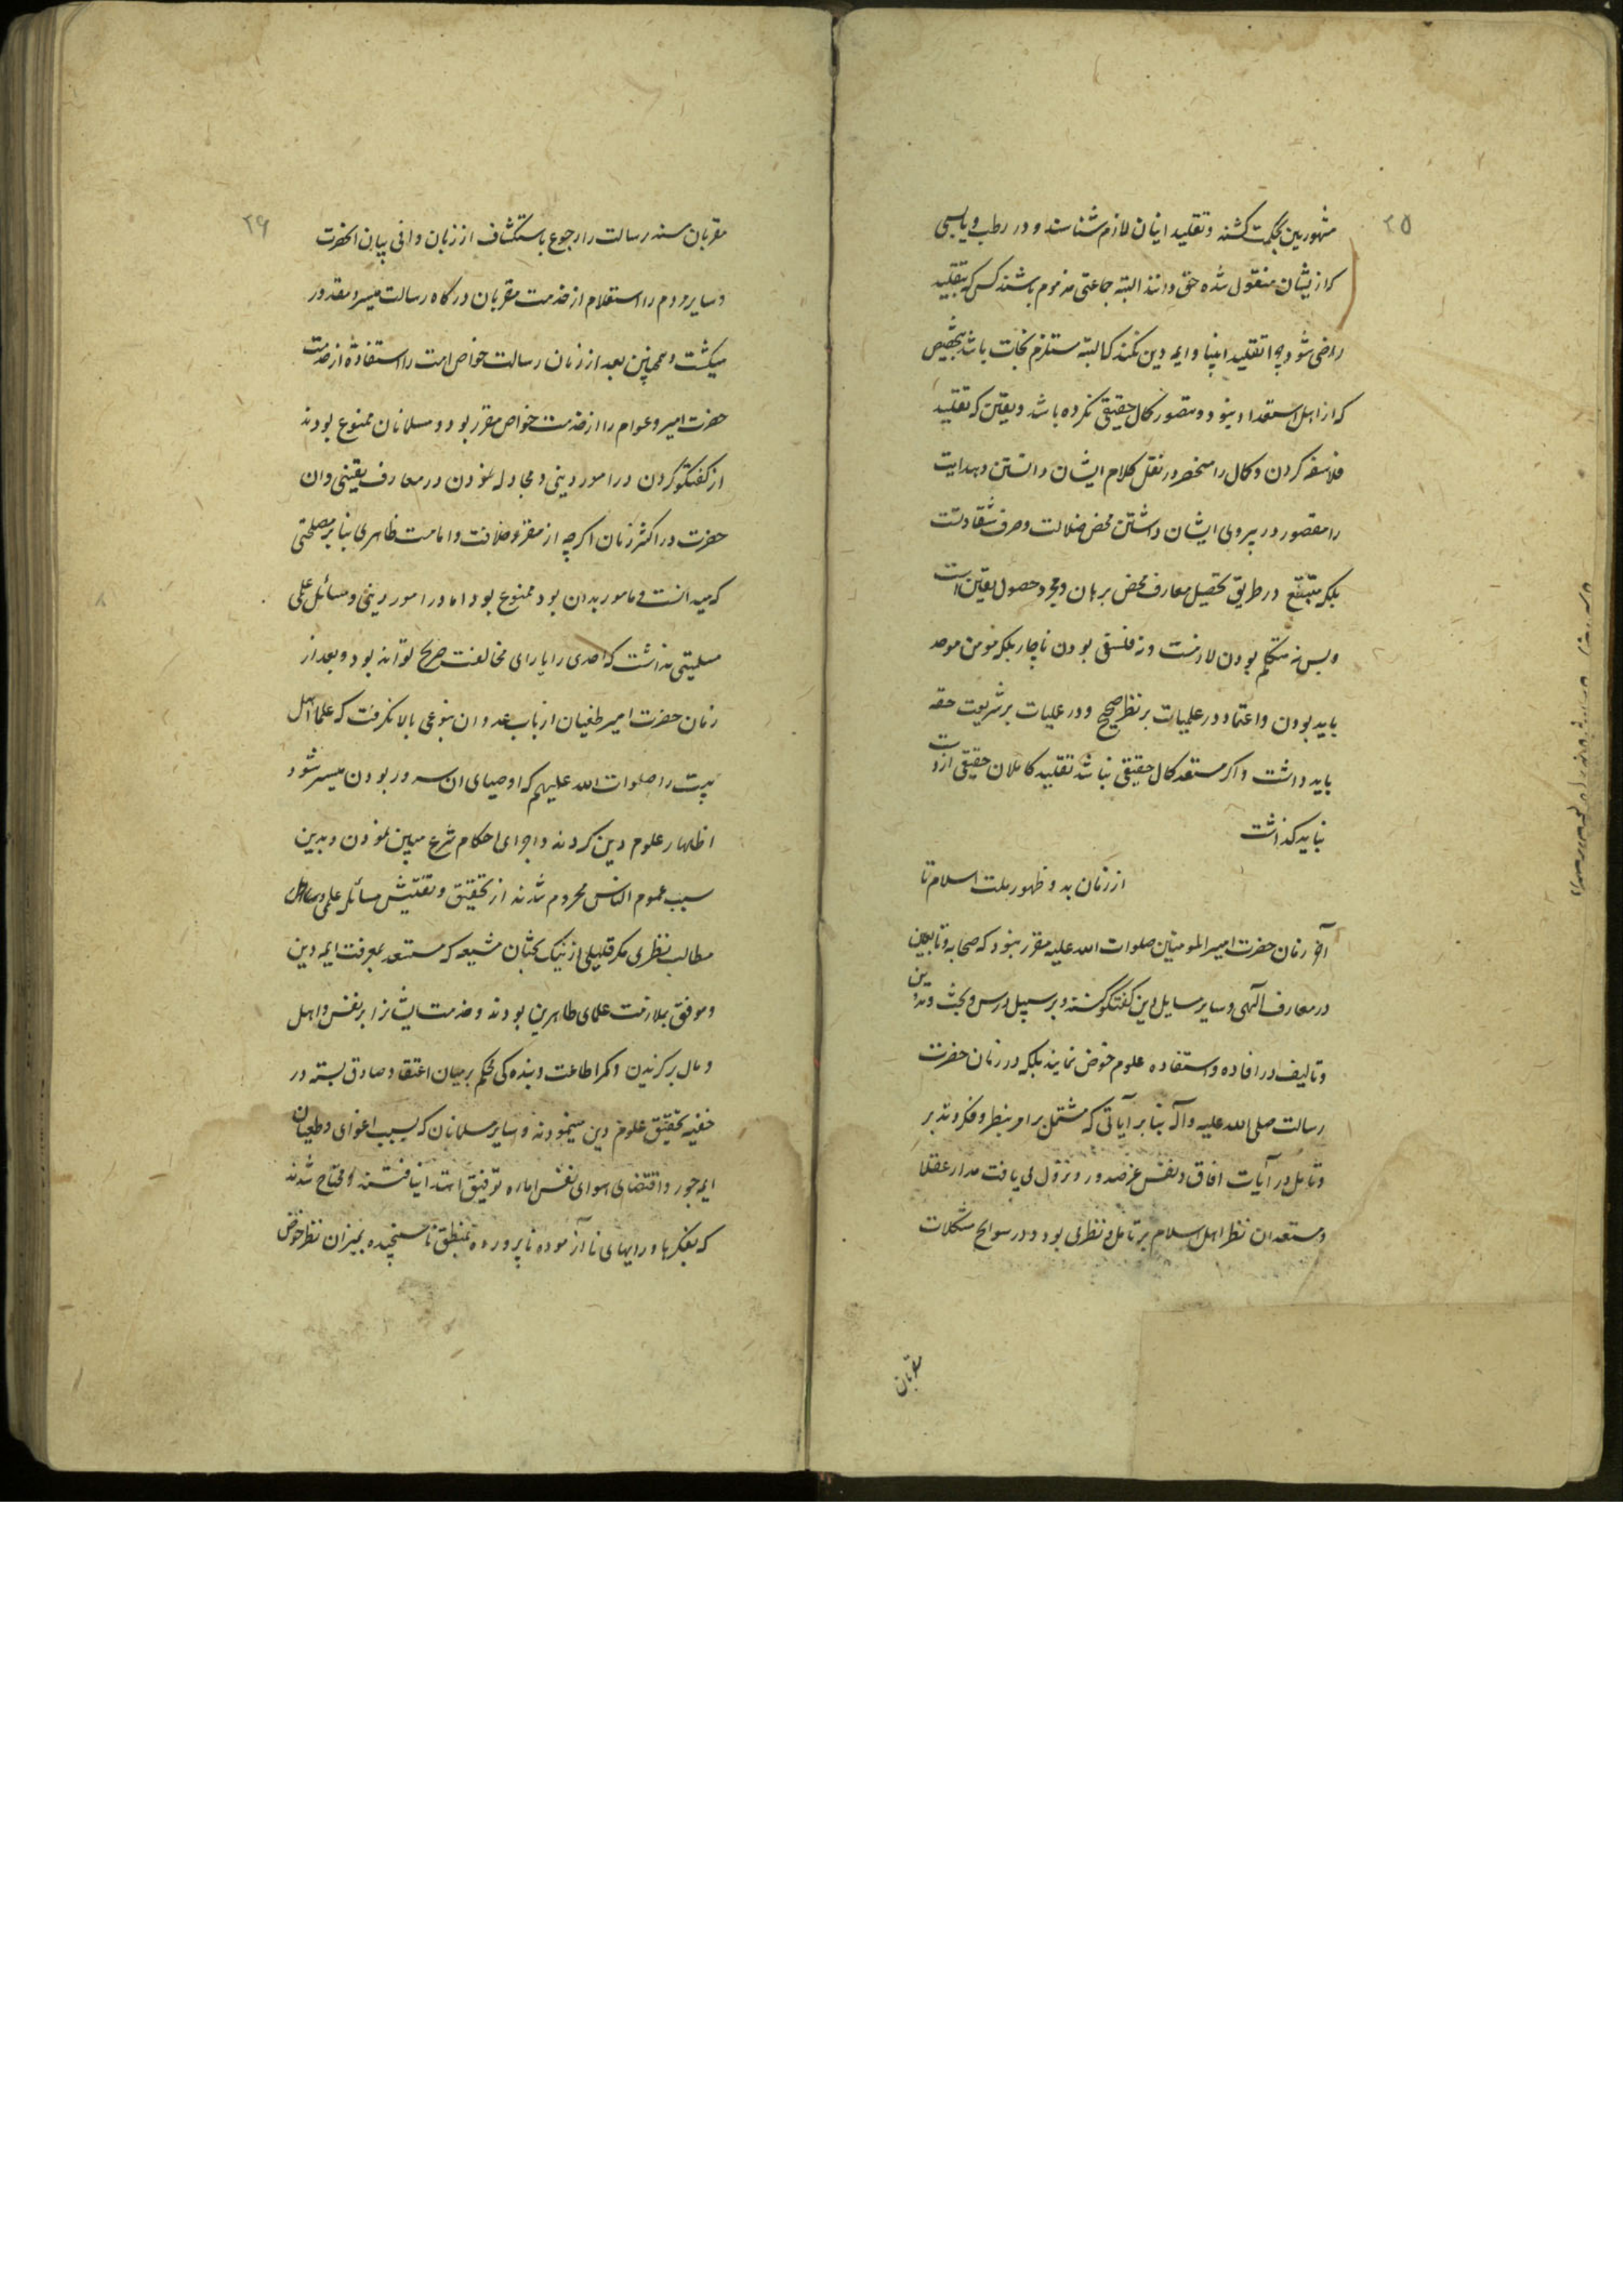 ۲۵
مشهورین بحکمت کشته و تقلید ایشان لازم شناسند و در رطب و یابسی
که از یشان منقول شده حق دانند البته جماعتی مذموم باشند کس که بتقلید
راضی شود چرا تقلید انبیا و ایمه دین نکند که البته مستلزم نجات باشد بتخصیص
که از اهل استعداد نبود و متصور کمال حقیقی نکرده باشد و یقین که تقلید
فلاسفه کردن و کمال را منحصر در نقل کلام ایشان دانستن و هدایت
را مقصور در پیروی ایشان داشتن محض ضلالت و صرف شقاوتست
بلکه متبع در طریق تحصیل معارف محض برهان و مجرد حصول یقین است
و بس نه متکلم بودن لازمست و نه فلسفی بودن ناچار بلکه مومن موحد
باید بودن و اعتماد در علمیات بر نظر صحیح و در عملیات بر شریعت حقه
باید داشت و اگر مستعد کمال حقیقی نباشد تقلید کاملان حقیقی از دست
نباید کذاشت
از زمان بدو ظهور ملت اسلام تا
آخر زمان حضرت امیر المومنین صلوات الله علیه مقرر نبود که صحابه و تابعین
در معارف الهی و سایر مسایل دین کفتکو کنند و بر سبیل درس و بحث و تدوین
و تالیف در افاده و استفاده علوم خوض نمایند بلکه در زمان حضرت
رسالت صلی الله علیه و آله بنا بر آیاتی که مشتمل بر امر بنظر و فکر و تدبر
و تامل در آیات افاق و انفس عز صدور و نزول می یافت مدار عقلا
و مستعدان نظر اهل اسلام بر تامل و نظر می بود و در سوانح مشکلات
مقربان
۲۶
مقربان سده رسالت را رجوع باستکشاف از زبان وافی بیان انحضرت
و سایر مردم را استعلام از خدمت مقربان درکاه رسالت میسر و مقدور
میکشت و همچنین بعد از زمان رسالت خواص امت را استفاده از خدمت
حضرت امیر و عوام را از خدمت خواص مقرر بود و مسلمانان ممنوع بودند
از کفتکو کردن در امور دینی و مجادله نمودن در معارف یقینی و ان
حضرت در اکثر زمان اکرچه از مقر خلافت و امامت ظاهری بنا بر مصلحتی
که میدانست و مامور بدان بود ممنوع بود اما در امور دینی و مسائل علمی
مسلیتی نداشت که احدی را یارای مخالفت صریح تواند بود و بعد از
زمان حضرت امیر طغیان ارباب عدوان بنوعی بالا نکرفت که علما اهل
بیت را صلوات الله علیهم که اوصیای ان سرور بودن میسر شود
اظهار علوم دین کردند و اجرای احکام شرع مبین نمودن و بدین
سبب عموم الناس محروم شدند از تحقیق و تفتیش مسائل علمی و
مطالب نظری مکر قلیلی از نیک بختان شیعه که مستعد بمعرفت ایمه دین
و موفق بملازمت علمای طاهرین بودند و خدمت ایشانرا بر نفس و اهل
و مال برکزیدن و کمر اطاعت و بنده کی محکم بر میان اعتقاد صادق بسته در
خفیه تحقیق علوم دین مینمودند و سایر مسلمانان که بسبب اغوای و طغیان
ایمه جور و اقتضای هوای نفس اماره توفیق اهتدا نیافتند و محتاج شدند
که بفکرها و رایهای نا آزموده ناپرورده بمنطق ناسنجیده بمیزان نظر خوض